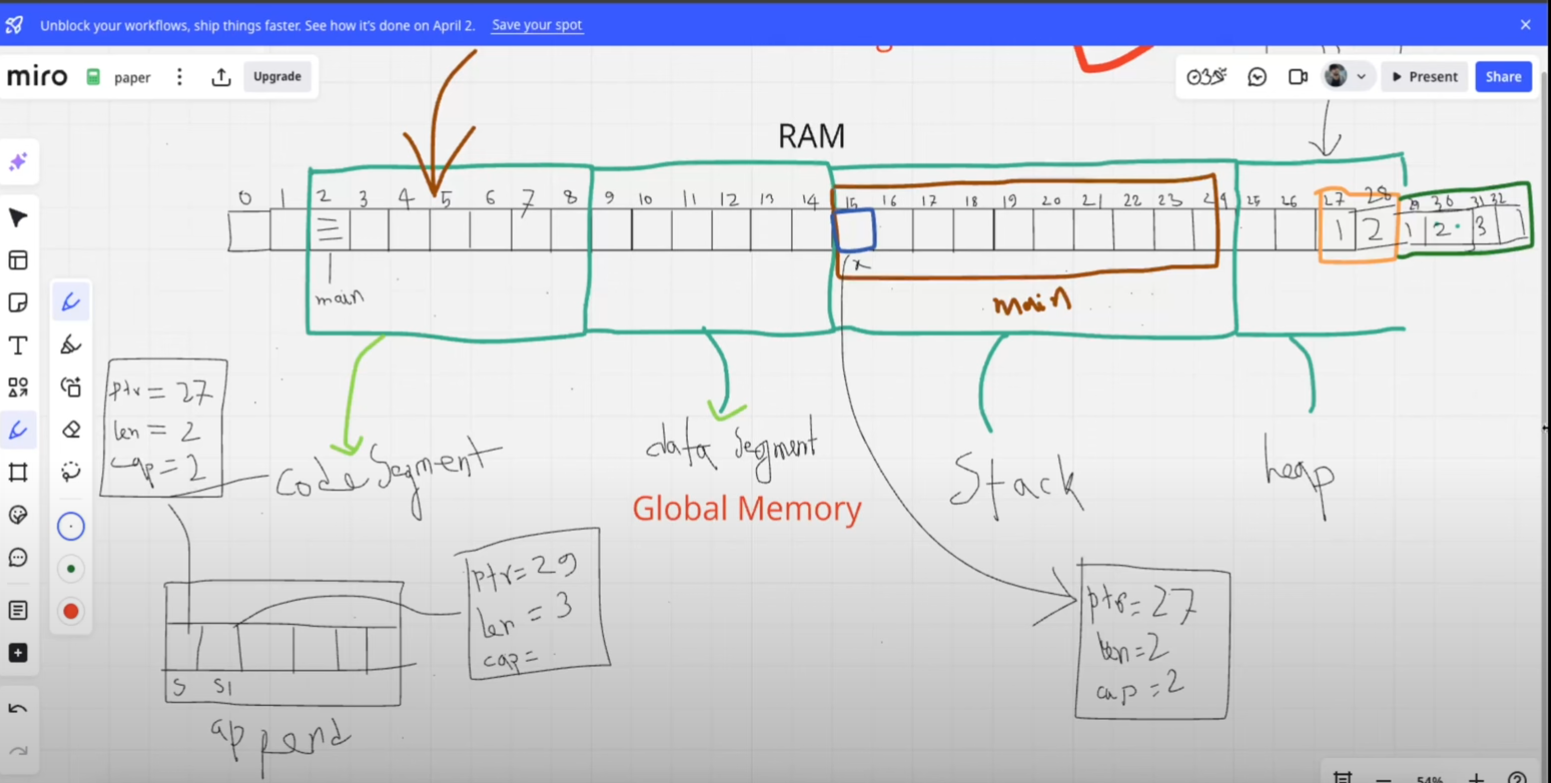 Unblock your workflows, ship things faster. See how it's done on April 2. Save your spot
miro paper Upgrade
Present Share
RAM
0 1 2 3 4 5 6 7 8 9 10 11 12 13 14 15 16 17 18 19 20 21 22 23 24 25 26 27 28 29 30 31 32
1 2 1 2 3
x
main
main
ptr = 27
len = 2
cap = 2
Code Segment
data Segment
Global Memory
Stack
heap
ptr = 29
len = 3
cap =
S S1
append
ptr = 27
len = 2
cap = 2
54%